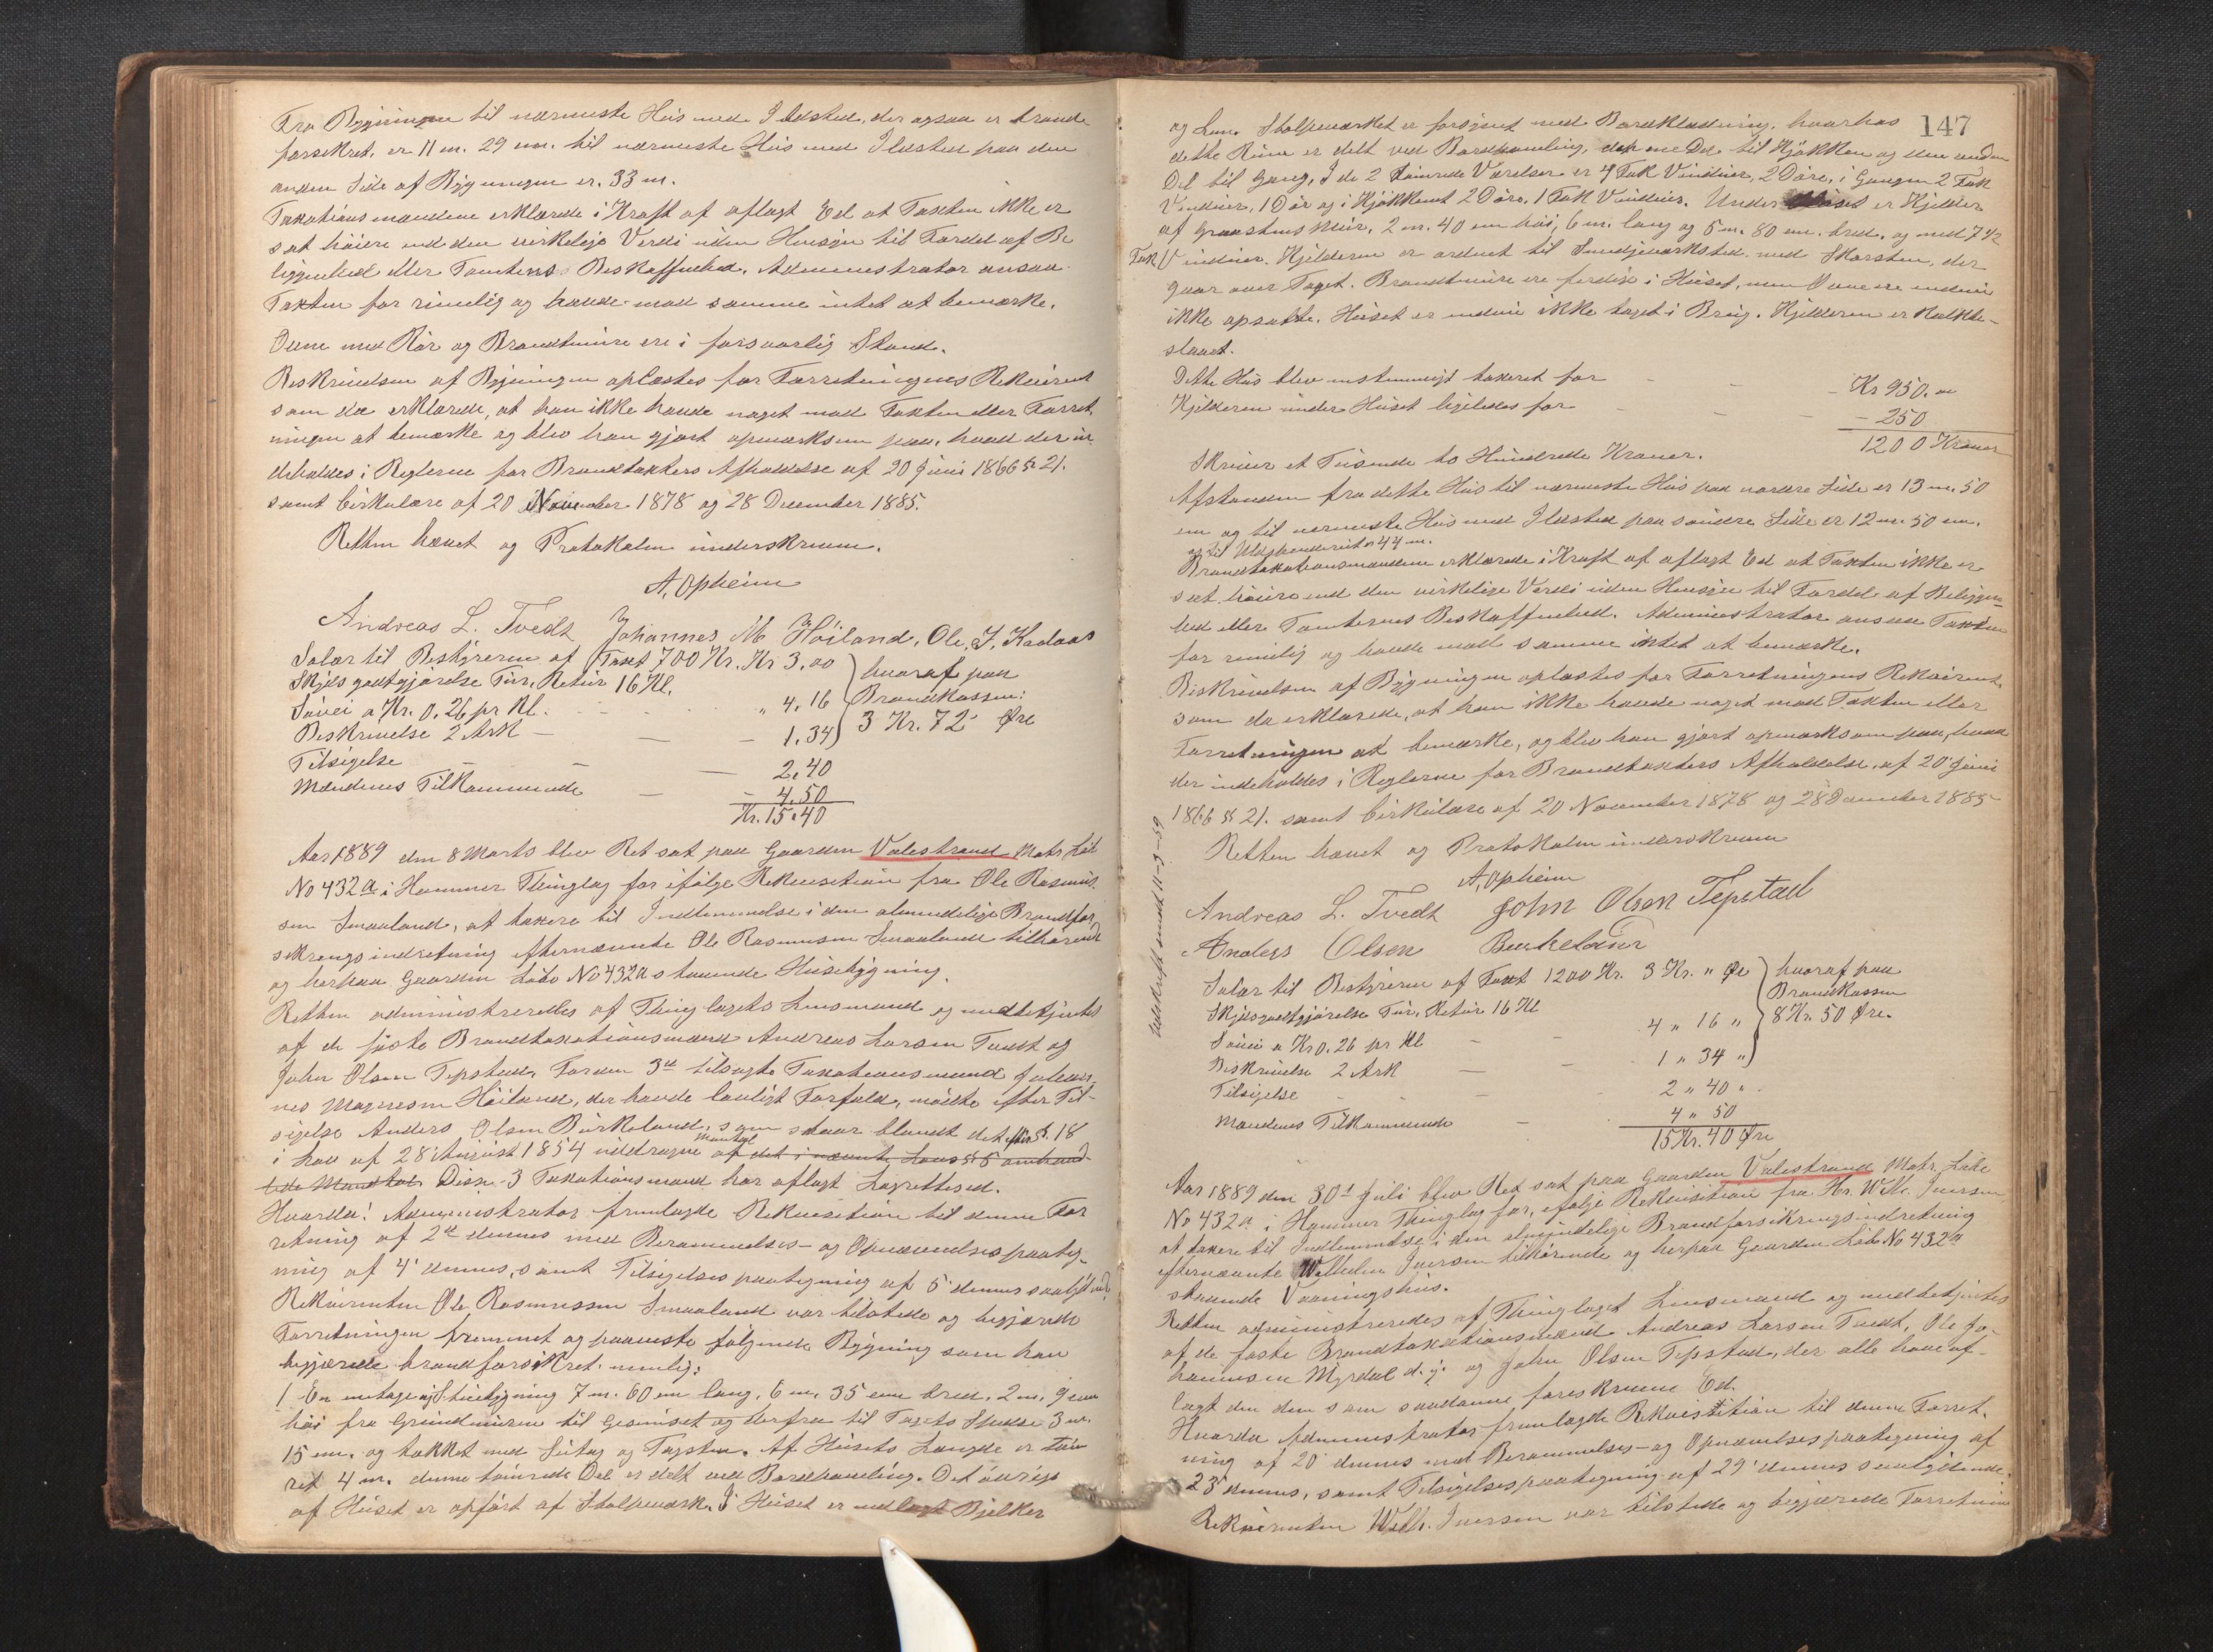 Fra Bygningen til nærmeste Hus med Ildsted, der ogsaa er brand
forsikret, er 11 m. 29 cm. til nærmeste Hus med Ildsted paa den
anden Side af Bygningen er. 33 m.
Taxationsmændene erklærede i Kraft af aflagt Ed at Taxten ikke er
sat høiere end den virkelige Verdi uden Hensyn til Fordel af Be
liggenhed eller Tomtens Beskaffenhed. Administrator ansaa
Taxten for rimelig og havde mod samme intet at bemærke.
Ovne med Rør og Brandmure ere i forsvarlig Stand.
Beskrivelsen af Bygningen oplæstes for Forretningens Rekvirent
som da erklærede, at han ikke havde noget mod Taxten eller Forret
ningen at bemærke og blev han gjort opmærksom paa, hvad der in
deholdes i Reglerne for Brandtaxters Afholdelse af 20 Juni 1866 § 21.
samt Cirkulære af 20 November 1878 og 28 December 1885.
Retten hævet og Protokolen underskreven.
A. Opheim
Andreas L. Tvedt Johannes M Höiland, Ole, J.
Salær til Bestyreren af Taxt 700 Kr. Kr 3,00 hvoraf paa
Skydsgodtgjørelse Tur, Retur 16 Kl. Brandkassen:
Søvei a Kr. 0.26 pr Kl. - - " 4.16 3 Kr. 72 Øre
Beskrivelse 2 Ark - - - 1.34
Tilsigelse - - 2.40
Mændenes Tilkommende - - 4.50
Kr. 15.40
Aar 1889 den 8 Marts blev Ret sat paa Gaarden Valestrand Matr. Løb
No 432a i Hammer Thinglag for ifølge Rekvisition fra Ole Rasmus
sen Smaaland, at taxere til Indlemmelse i den almindelige Brandfor
sikrings indretning efternævnte Ole Rasmussen Smaaland tilhørende
og herpaa Gaarden Løbe No 432a staaende Husebygning.
Retten administreredes af Thinglagets Lensmand og medbetjentes
af de faste Brandtaxationsmænd Andreas Larsen Tvedt og
John Olsen Tepstad, For den 3die tilsagte Taxationsmand Johan
nes Magnesen Höiland, der havde lovligt Forfald, mødte efter Til-
sigelse Anders Olsen Birkeland, som staar blandt det efter § 18
i Lov af 28 August 1854 uddragne Mantal af det i nævnte Lovs § 5 omhand
lede Mandtal. Disse 3 Taxationsmænd har aflagt Lagrettesed.
Hvorda! Administrator fremlagde Rekvisition til denne For
retning af 2de dennes med Berammelses- og Opnævnelsespaateg-
ning af 4' dennes, samt Tilsigelsespaategning af 5' dennes saalydende
Rekvirenten Ole Rasmussen Smaaland var tilstede og begjærede
Forretningen fremmet og paaviste følgende Bygning som han
begjærede brandforsikret nemlig:
1 En en etages Stuebygning 7 m. 60 cm lang, 6 m. 35 cm bred, 2 m, 9 cm
høi fra Grundmuren til Gesimset og derfra til Tagets Spidse 3 m.
15 cm. og tækket med Sutag og Tagsten. Af Husets Længde er tøm
ret 4 m. denne tømrede Del er delt ved Bordbandling. Det øvrige
af Huset er opført af Stolpeværk. I Huset er indlagt Bjelker
147
og Lem. Stolpeværket er forsynet med Bordklædning, hvorhos
dette Rum er delt ved Bordpanling, den ene Del til Kjøkken og den anden
Del til Gang, I de 2 tømrede Værelser er 4 Fak Vinduer, 2 Døre, i Gangen 2 Fak
Vinduer, 1 Dør og i Kjøkkenet 2 Døre, 1 Fak Vinduer. Under Huset er Kjelder
af Graastensmur, 2 m. 40 cm høi, 6 m. lang og 5 m. 80 cm. bred, og med 7 1/2
Fak Vinduer. Kjelderen er ordnet til Smedjeværksted med Skorsten, der
gaar over Taget. Brandmure ere færdige i Huset, men Ovne ere endnu
ikke opsatte. Huset er endnu ikke taget i Brug. Kjelderen er Kalkbe-
slaaet.
Dette Hus blev enstemmigt taxeret for - - - Kr 950.00
Kjelderen under Huset ligeledes for - - - 250
1200 Kroner
Skriver et Tusende to Hundrede Kroner.
Afstanden fra dette Hus til nærmeste Hus paa nordre Side er 13 m. 50
cm og til nærmeste Hus med Ildsted paa søndre Side er 12 m. 50 cm.
og til Uldspinderiet 44 m.
Brandtaxationsmændene erklærede i Kraft af aflagt Ed at Taxten ikke er
sat høiere end den virkelige Verdi uden Hensyn til Fordel af Beliggen-
hed eller Tomternes Beskaffenhed. Administrator ansaa Taxten
for rimelig og havde mod samme intet at bemærke.
Beskrivelsen af Bygningen oplæstes for Forretningens Rekvirent,
som da erklærede, at han ikke havde noget mod Taxten eller
Forretningen at bemærke, og blev han gjort opmærksom paa, hvad
der indeholdes i Reglerne for Brandtaxters Afholdelse, af 20 Juni
1866 § 21. samt Cirkulære af 20 November 1878 og 28 December 1885
Retten hævet og Protokolen underskreven
A. Opheim
Andreas L. Tvedt John Olsen Tepstad
Anders Olsen Berkeland
Salær til Bestyreren af Taxt 1200 Kr. 3 Kr. " Øre hvoraf paa
Skydsgodtgjørelse Tur, Retur 16 Kl Brandkassen
Søvei a Kr 0.26 pr Kl - - 4 " 16 " 8 Kr. 50 Øre.
Beskrivelse 2 Ark - - 1 " 34 "
Tilsigelse 2 " 40 "
Mændenes Tilkommende - 4 " 50
15 Kr. 40 Øre
11-3-89
Aar 1889 den 30te Juli blev Ret sat paa Gaarden Valestrand Matr. Løbe
No 432a i Hammer Thinglag for, ifølge Rekvisition fra Hr. Wilh. Iversen
at taxere til Indlemmelse i den almindelige Brandforsikringsindretning
efternævnte Wilhelm Iversen tilhørende og herpaa Gaarden Løbe No 432a
staaende Vaaningshus.
Retten administreredes af Thinglaget Lensmand og medbetjentes
af de faste Brandtaxationsmænd Andreas Larsen Tvedt, Ole Jo-
hannesen Myrdal d. y. og John Olsen Tepstad, der alle have af-
lagt den dem som saadanne foreskrevne Ed.
Hvorda Administrator fremlagde Rekvisition til denne Forret-
ning af 20' dennes med Berammelses- og Opnævnelsespaategning af
23' dennes, samt Tilsigelsespaategning af 29' dennes saalydende.
Rekvirenten Wilh. Iversen var tilstede og begjærede Forretnin